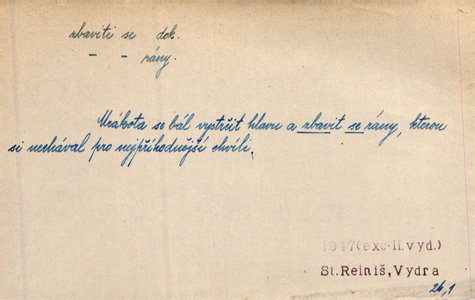 zbaviti se dok.
— — rány.
Mrákota se bál vystrčit hlavu a zbavit se rány, kterou
si nechával pro nejpříhodnější chvíli.
1947 (exc. II. vyd.)
St. Reiniš, Vydra
26,1